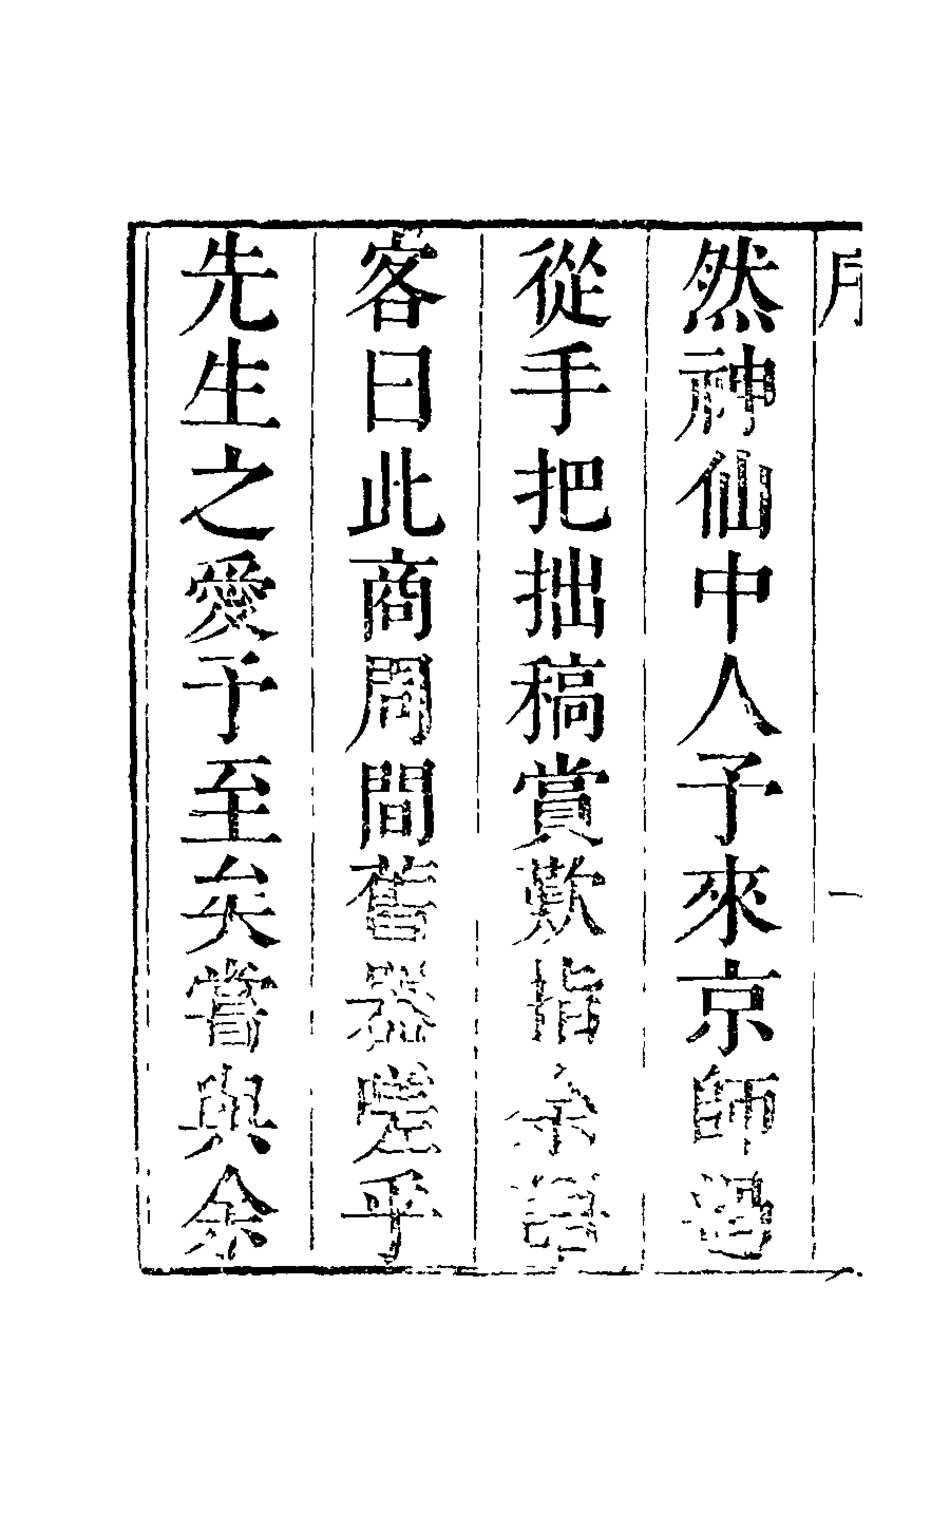 序
一
然神仙中人子來京師過
從手把拙稿賞歎指余謂
客曰此商周間舊器嗟乎
先生之愛予至矣嘗與余